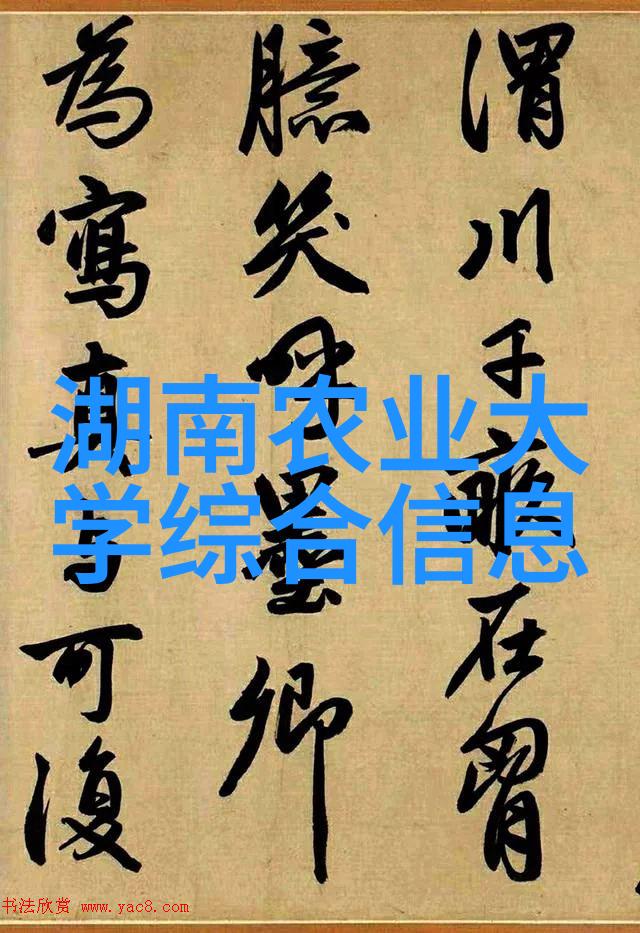 渭川子瞻在胷
臆笑呼墨卿
為寫真与可復
湖南农业大
学综合信息
书法欣赏 www.yac8.com